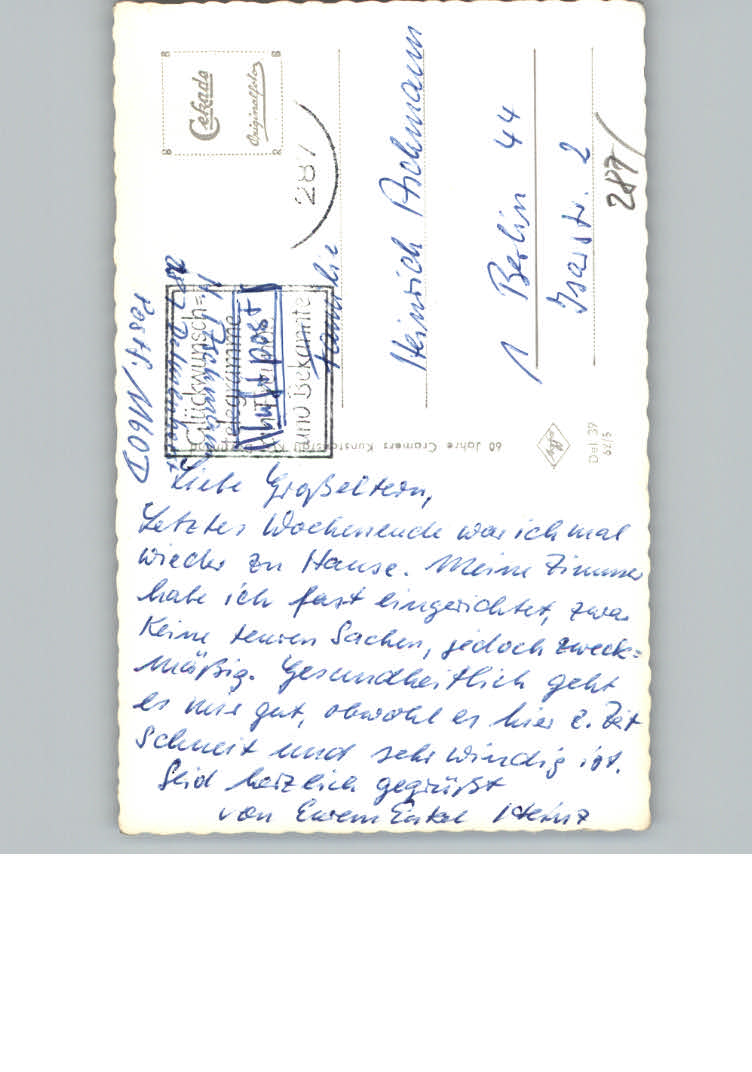 Cekade
Originalfoto
287
Glückwunsch=
telegramme
und Bekannte
Luftpost
H. Aschmann
287 Delmenhorst
Postf. 1160 D
Familie
Heinrich Aschmann
1 Berlin 44
Isarstr. 2
287
60 Jahre Cramers Kunstanstalt KG
Del 39
62/5
Liebe Großeltern,
Letztes Wochenende war ich mal
wieder zu Hause. Meine Zimmer
habe ich fast eingerichtet, zwar
keine teuren Sachen, jedoch zweck=
mäßig. Gesundheitlich geht
es mir gut, obwohl es hier z. Zeit
schneit und sehr windig ist.
Seid herzlich gegrüßt
von Eurem Enkel Heinz